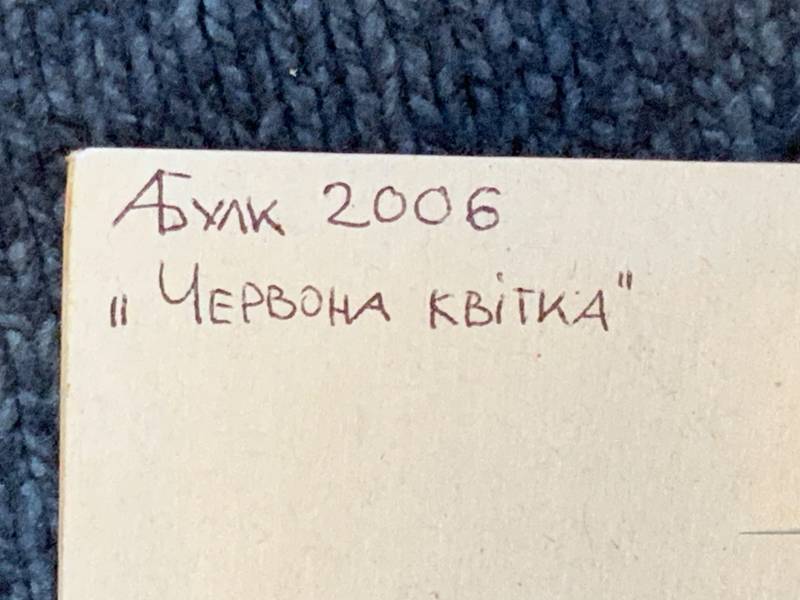 АБулк 2006
„Червона квітка"